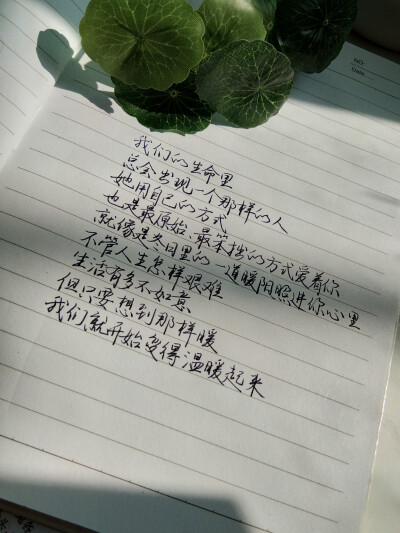 NO.
Date.
我们的生命里
总会出现一个那样的人
她用自己的方式
也是最原始、最笨拙的方式爱着你
就像是冬日里的一道暖阳照进你心里
不管人生怎样艰难
生活有多不如意
但只要想到那样暖
我们就开始变得温暖起来